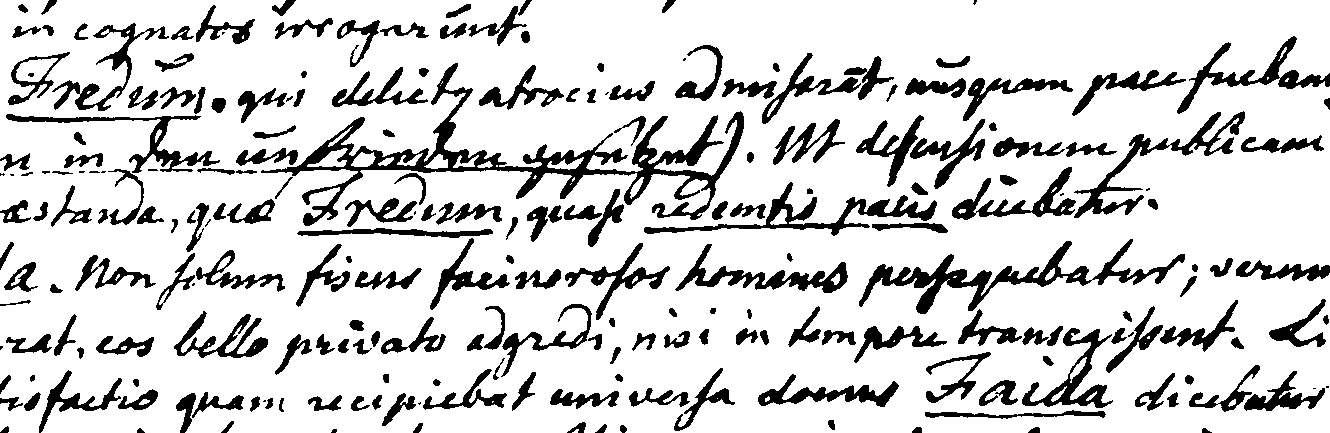 in cognatos irrogarunt.
Fredum. qui delicty atrocius admiserāt, nusquam pace fueban
n in den unfrieden gesetzet). Ut defensionem publicam
æstanda, quæ Fredum, quasi redemtio pacis dicebatur.
a. Non solum fiscus facinorosos homines persequebatur; verum
rat, eos bello privato adgredi, nisi in tempore transegissent. Li
tisfactio quam recipiebat universa domus Faida dicebatur